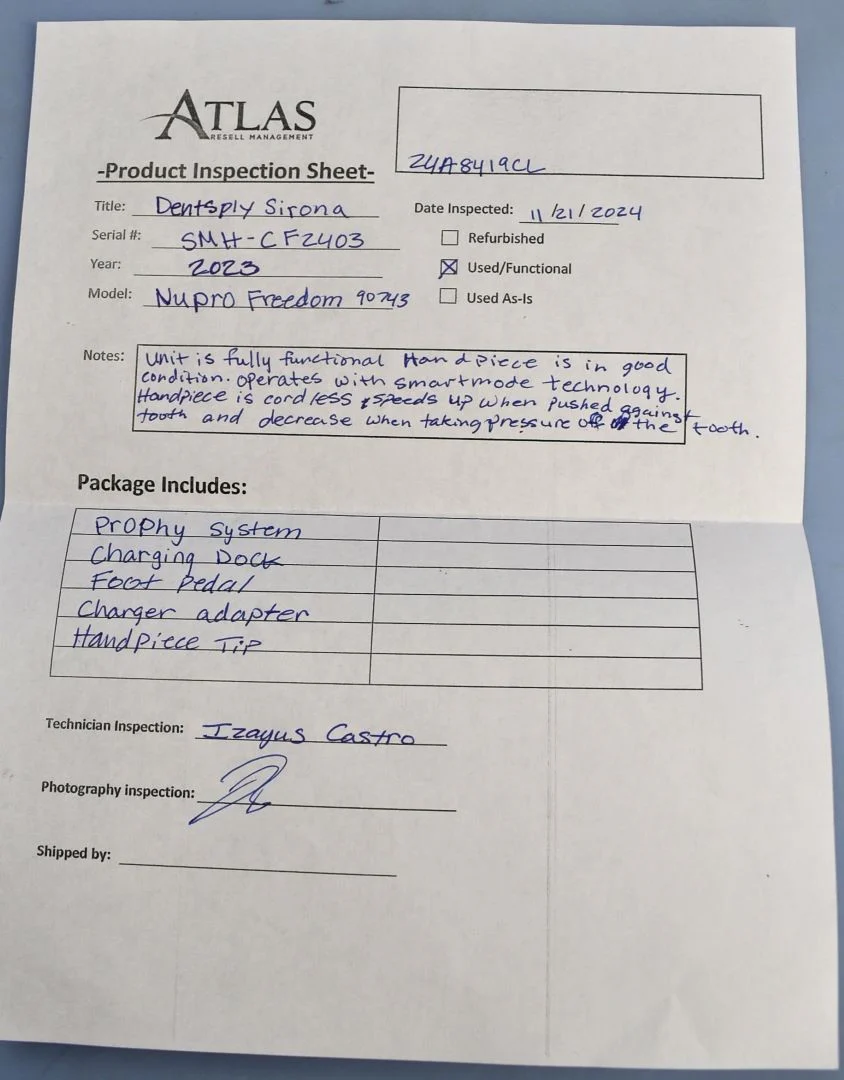 ATLAS
RESELL MANAGEMENT
24A8419CL
-Product Inspection Sheet-
Title: Dentsply Sirona
Date Inspected: 11/21/2024
Serial #: SMH-CF2403
Refurbished
Year: 2023
Used/Functional
Model: Nupro Freedom 90743
Used As-Is
Notes: Unit is fully functional Handpiece is in good
condition. operates with smartmode technology.
Handpiece is cordless & speeds up when pushed against
tooth and decrease when taking pressure off the tooth.
Package Includes:
Prophy System
Charging Dock
Foot Pedal
Charger adapter
Handpiece Tip
Technician Inspection: Izayus Castro
Photography inspection:
Shipped by: